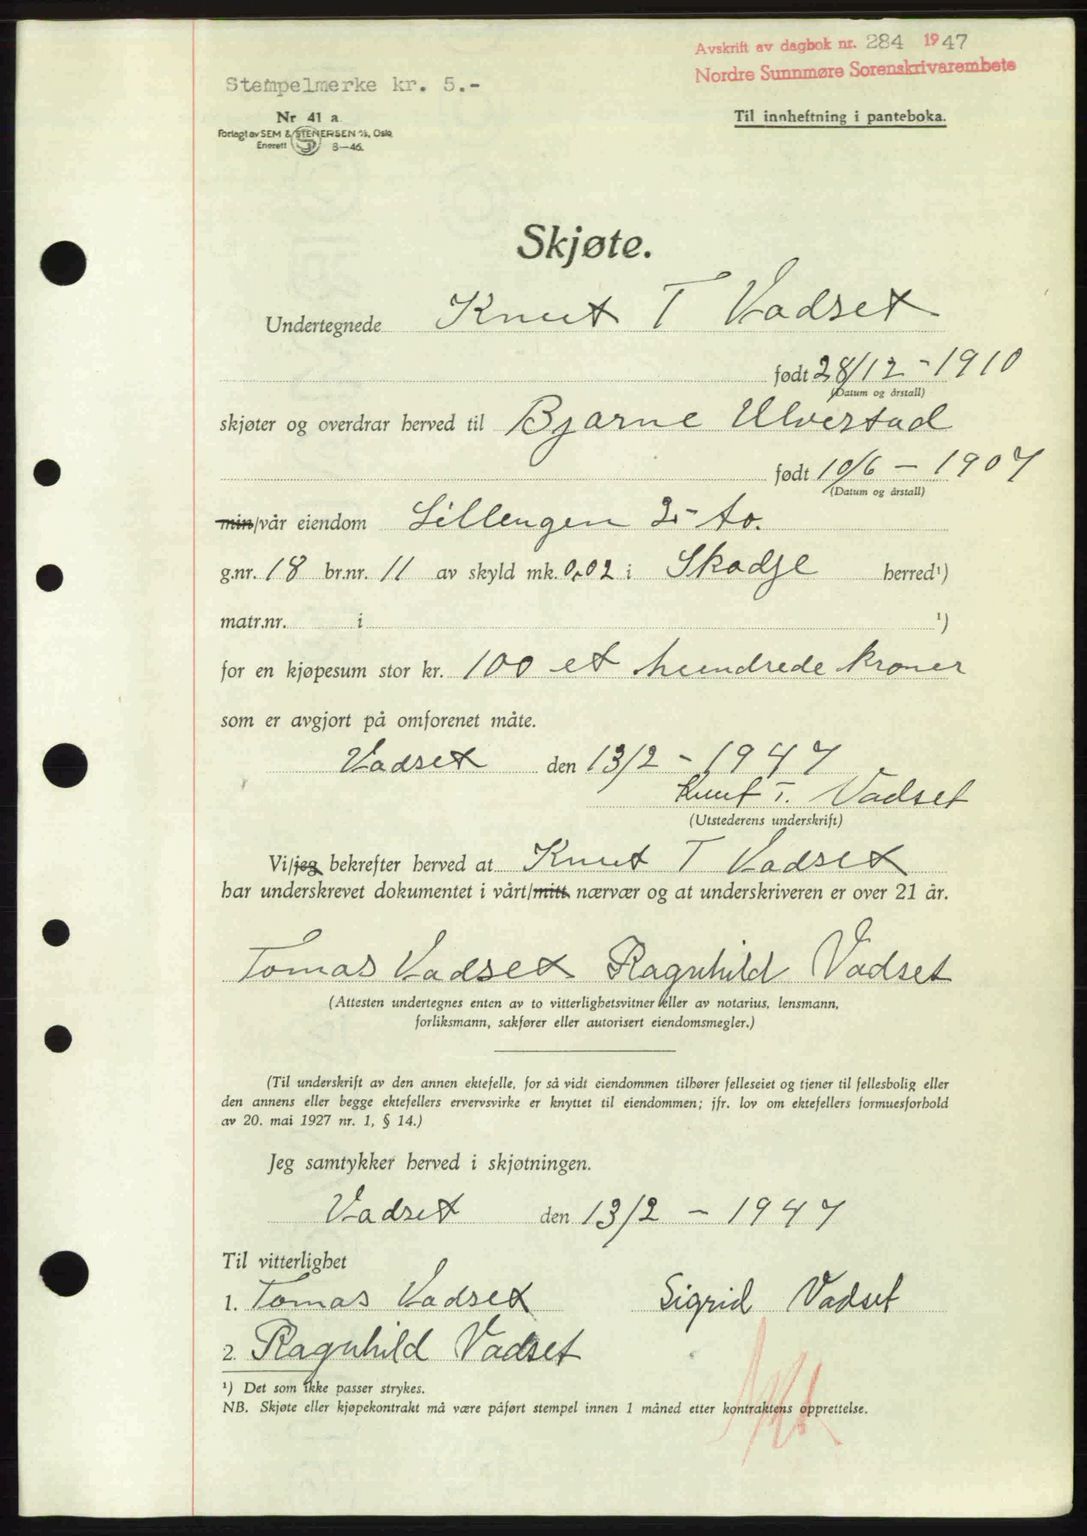 Avskrift av dagbok nr. 284 1947
Nordre Sunnmøre Sorenskrivarembete
Stempelmerke kr. 5.-
Nr 41 a.
Forlagt av SEM & STENERSEN A/S, Oslo
Enerett 8-46.
Til innheftning i panteboka.
Skjøte.
Undertegnede Knut T Vadset
født 28/12 - 1910
(Datum og årstall)
skjøter og overdrar herved til Bjarne Ulvestad
født 10/6 - 1907
(Datum og årstall)
min/vår eiendom Lillengen 2- to.
g.nr. 18 br.nr. 11 av skyld mk. 0,02 i Skodje herred¹)
matr.nr. i ¹)
for en kjøpesum stor kr. 100 et hundrede kroner
som er avgjort på omforenet måte.
Vadset den 13/2 - 1947
Knut T. Vadset
(Utstederens underskrift)
Vi/jeg bekrefter herved at Knut T Vadset
har underskrevet dokumentet i vårt/mitt nærvær og at underskriveren er over 21 år.
Tomas Vadset Ragnhild Vadset
(Attesten undertegnes enten av to vitterlighetsvitner eller av notarius, lensmann,
forliksmann, sakfører eller autorisert eiendomsmegler.)
(Til underskrift av den annen ektefelle, for så vidt eiendommen tilhører felleseiet og tjener til fellesbolig eller
den annens eller begge ektefellers ervervsvirke er knyttet til eiendommen; jfr. lov om ektefellers formuesforhold
av 20. mai 1927 nr. 1, § 14.)
Jeg samtykker herved i skjøtningen.
Vadset den 13/2 - 1947
Til vitterlighet
1. Tomas Vadset Sigrid Vadset
2. Ragnhild Vadset
¹) Det som ikke passer strykes.
NB. Skjøte eller kjøpekontrakt må være påført stempel innen 1 måned etter kontraktens opprettelse.